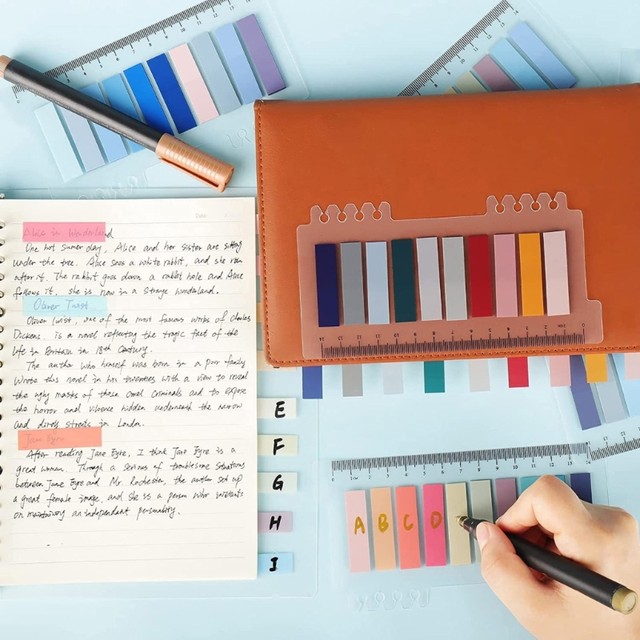 Alice in Wonderland
One hot summer day, Alice and her sister are sitting
under the tree. Alice sees a white rabbit, and she runs
after it. The rabbit goes down a rabbit hole and Alice
follows it, she is now in a strange wonderland.
Oliver Twist
Oliver Twist, one of the most famous works of Charles
Dickens, is a novel reflecting the tragic fact of the
life in Britain in 18th Century.
The author who himself was born in a poor family
wrote this novel in his twenties with a view to reveal
the ugly masks of those cruel criminals and to expose
the horror and violence hidden underneath the narrow
and dirty streets in London.
Jane Eyre
After reading Jane Eyre, I think Jane Eyre is a
great women. Through a serious of troublesome situations
between Jane Eyre and Mr. Rochester, the author set up
a great female image, and she is a person who insists
on maintaining an independent personality.
E
F
G
H
I
A B C D